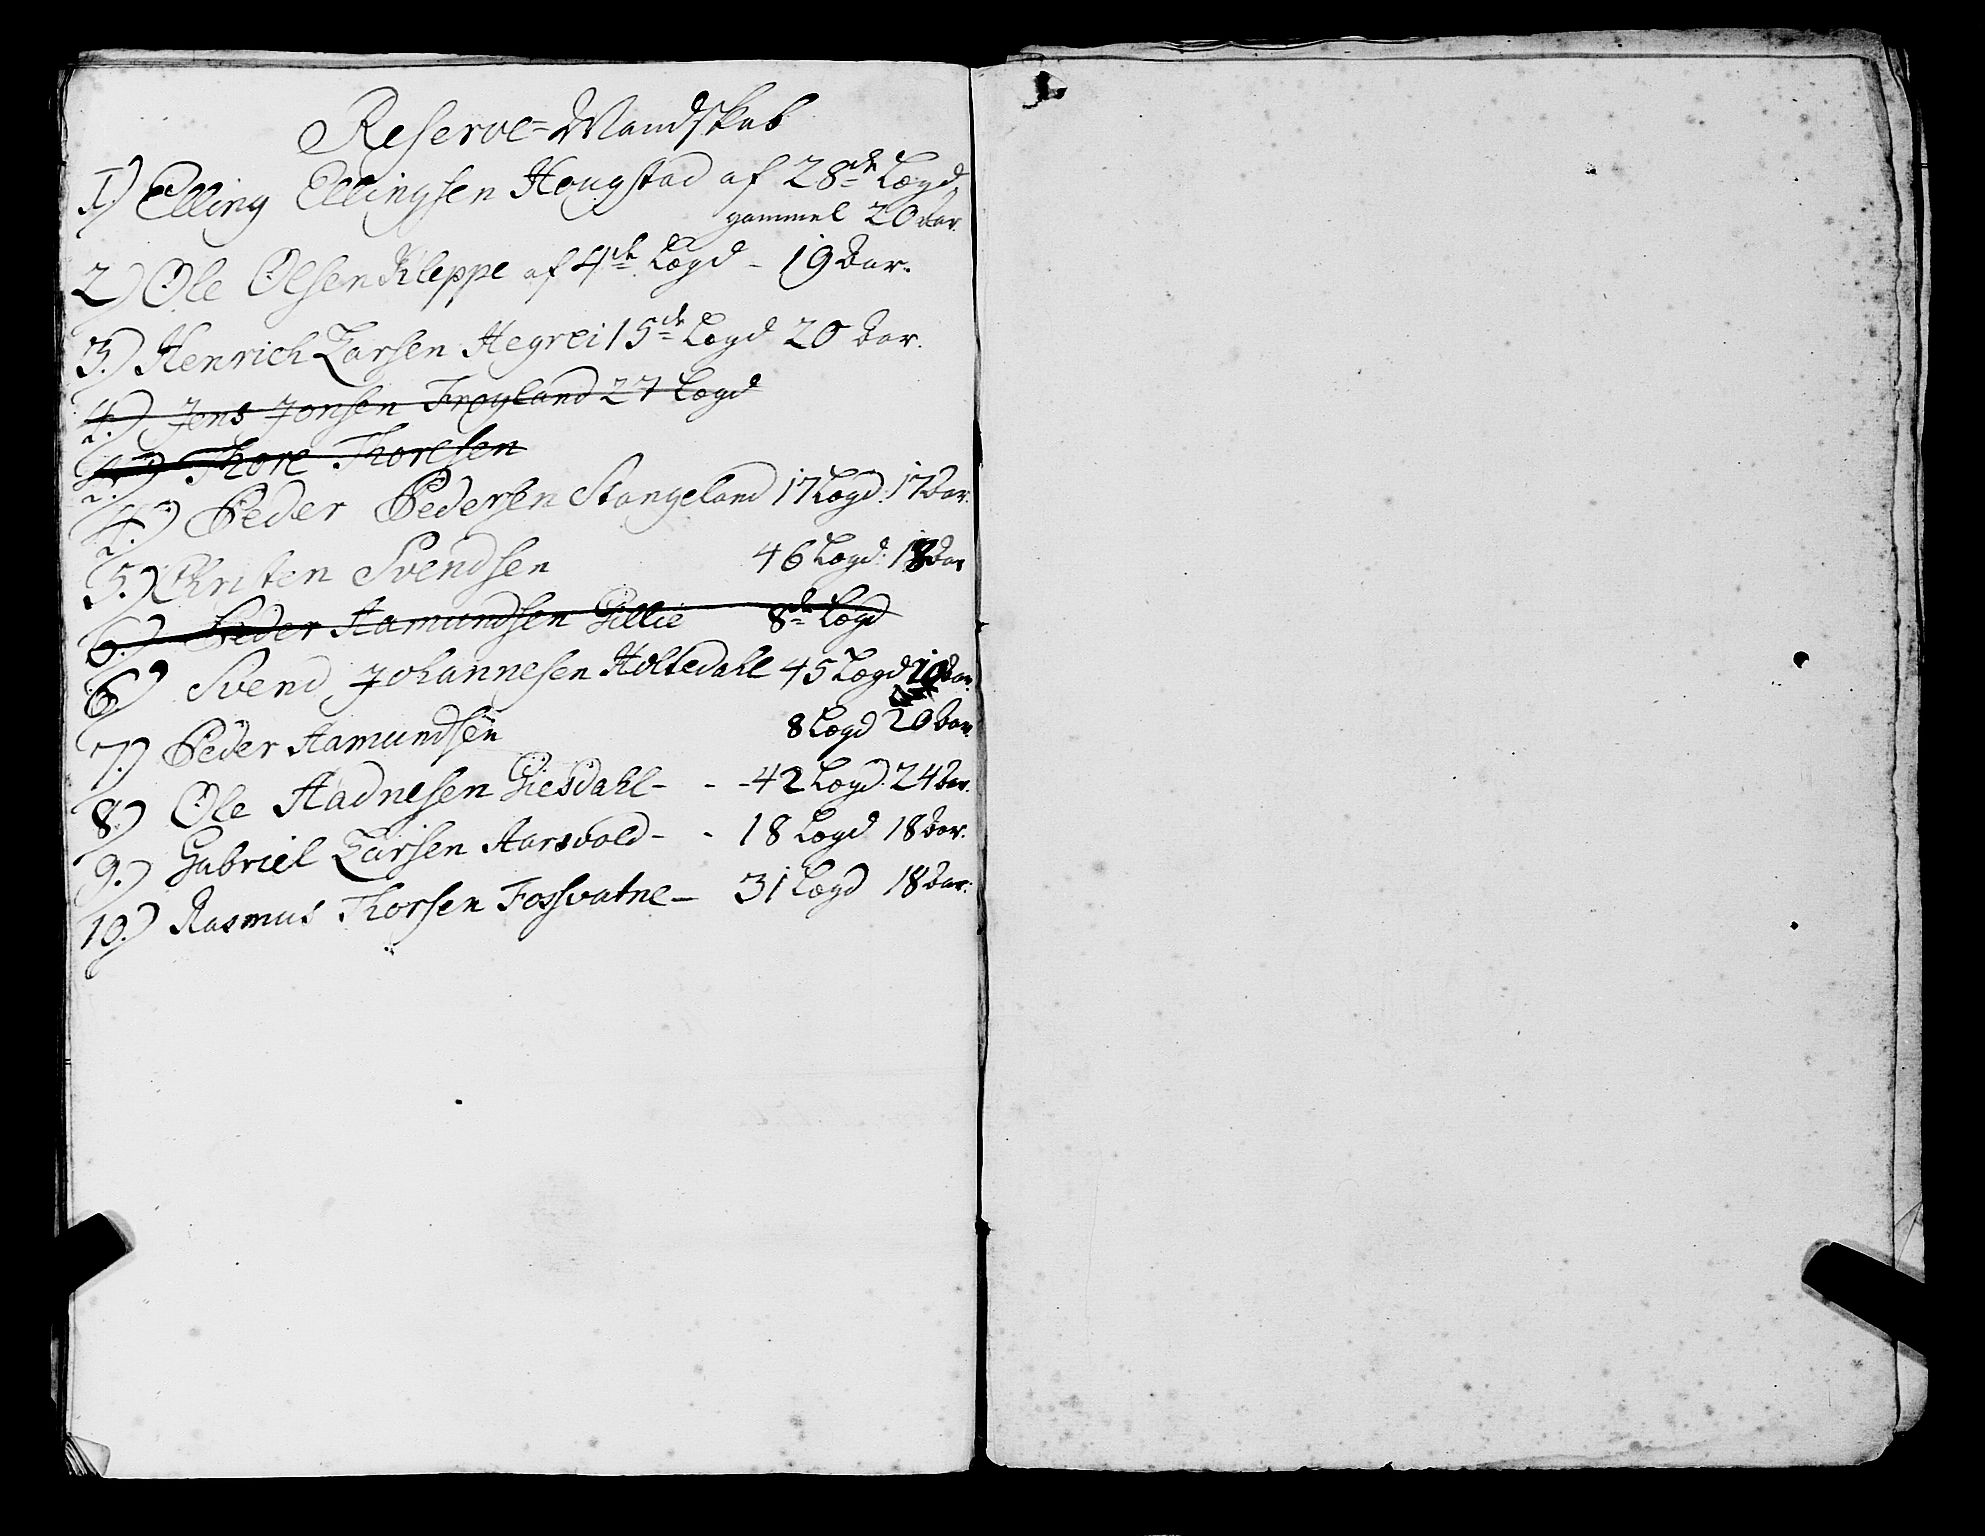 Reserve=Mandskab
1.) Elling Ellingsen Hougstad af 28de Lægd,
gammel 20 aar.
2) Ole Olsen Kleppe af 4de Lægd - 19 Aar.
3.) Henrich Larsen Hegrei 15de Lægd 20 Aar.
4.) Jens Jonsen Frøyland 27 Lægd
4.) Thore Thoresen
4.) Peder Pedersen Stangeland 17 Lægd: 17 Aar.
5.) Christen Svendsen 46 Lægd: 18 Aar
6.) Peder Aamundsen Gillie 8de Lægd
6) Svend Johannesen Holtedahl 45 Lægd Aar.
7.) Peder Aamundsen 8 Lægd 20 Aar.
8) Ole Aadnesen Giesdahl - - - 42 Lægd: 24 Aar.
9.) Gabriel Larsen Aarsvold - - 18 Lægd 18 Aar.
10.) Rasmus Thorsen Fossvatne - 31 Lægd 18 Aar: